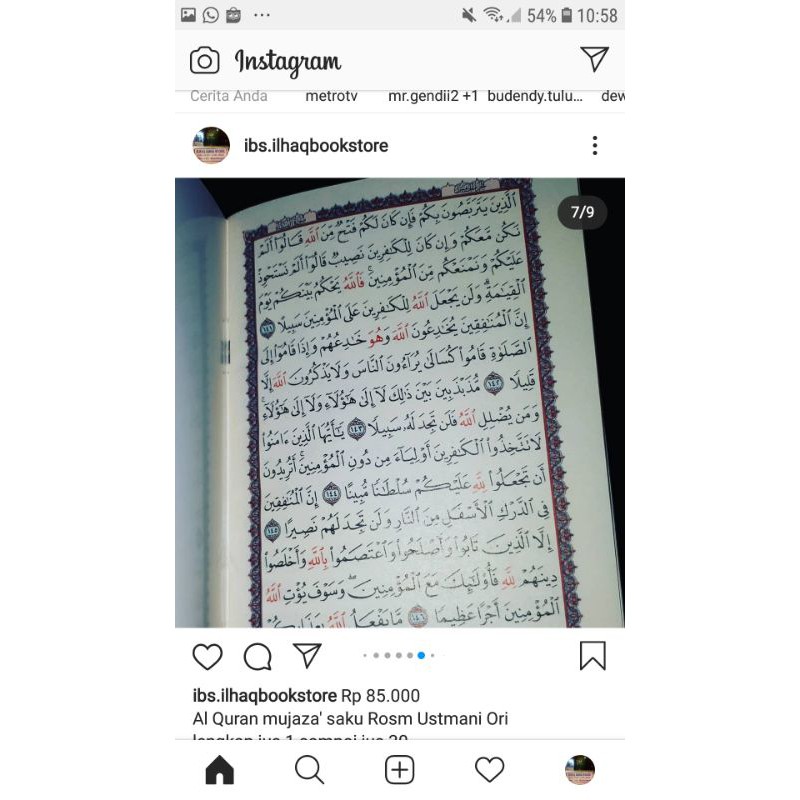 54% 10:58
Instagram
Cerita Anda metrotv mr.gendii2 +1 budendy.tulu... dew
ibs.ilhaqbookstore
7/9
ٱلَّذِينَ يَتَرَبَّصُونَ بِكُمْ فَإِن كَانَ لَكُمْ فَتْحٌ مِّنَ ٱللَّهِ قَالُوٓا۟ أَلَمْ
نَكُن مَّعَكُمْ وَإِن كَانَ لِلْكَٰفِرِينَ نَصِيبٌ قَالُوٓا۟ أَلَمْ نَسْتَحْوِذْ
عَلَيْكُمْ وَنَمْنَعْكُم مِّنَ ٱلْمُؤْمِنِينَ ۚ فَٱللَّهُ يَحْكُمُ بَيْنَكُمْ يَوْمَ
ٱلْقِيَٰمَةِ ۗ وَلَن يَجْعَلَ ٱللَّهُ لِلْكَٰفِرِينَ عَلَى ٱلْمُؤْمِنِينَ سَبِيلًا ١٤١
إِنَّ ٱلْمُنَٰفِقِينَ يُخَٰدِعُونَ ٱللَّهَ وَهُوَ خَٰدِعُهُمْ وَإِذَا قَامُوٓا۟ إِلَى
ٱلصَّلَوٰةِ قَامُوا۟ كُسَالَىٰ يُرَآءُونَ ٱلنَّاسَ وَلَا يَذْكُرُونَ ٱللَّهَ إِلَّا
قَلِيلًا ١٤٢ مُّذَبْذَبِينَ بَيْنَ ذَٰلِكَ لَآ إِلَىٰ هَٰٓؤُلَآءِ وَلَآ إِلَىٰ هَٰٓؤُلَآءِ ۚ
وَمَن يُضْلِلِ ٱللَّهُ فَلَن تَجِدَ لَهُۥ سَبِيلًا ١٤٣ يَٰٓأَيُّهَا ٱلَّذِينَ ءَامَنُوا۟
لَا تَتَّخِذُوا۟ ٱلْكَٰفِرِينَ أَوْلِيَآءَ مِن دُونِ ٱلْمُؤْمِنِينَ ۚ أَتُرِيدُونَ
أَن تَجْعَلُوا۟ لِلَّهِ عَلَيْكُمْ سُلْطَٰنًا مُّبِينًا ١٤٤ إِنَّ ٱلْمُنَٰفِقِينَ
فِى ٱلدَّرْكِ ٱلْأَسْفَلِ مِنَ ٱلنَّارِ وَلَن تَجِدَ لَهُمْ نَصِيرًا ١٤٥
إِلَّا ٱلَّذِينَ تَابُوا۟ وَأَصْلَحُوا۟ وَٱعْتَصَمُوا۟ بِٱللَّهِ وَأَخْلَصُوا۟
دِينَهُمْ لِلَّهِ فَأُو۟لَٰٓئِكَ مَعَ ٱلْمُؤْمِنِينَ ۖ وَسَوْفَ يُؤْتِ ٱللَّهُ
ٱلْمُؤْمِنِينَ أَجْرًا عَظِيمًا ١٤٦ مَّا يَفْعَلُ ٱللَّهُ بِعَذَابِكُمْ
ibs.ilhaqbookstore Rp 85.000
Al Quran mujaza' saku Rosm Ustmani Ori
lengkap juz 1 sampai juz 30